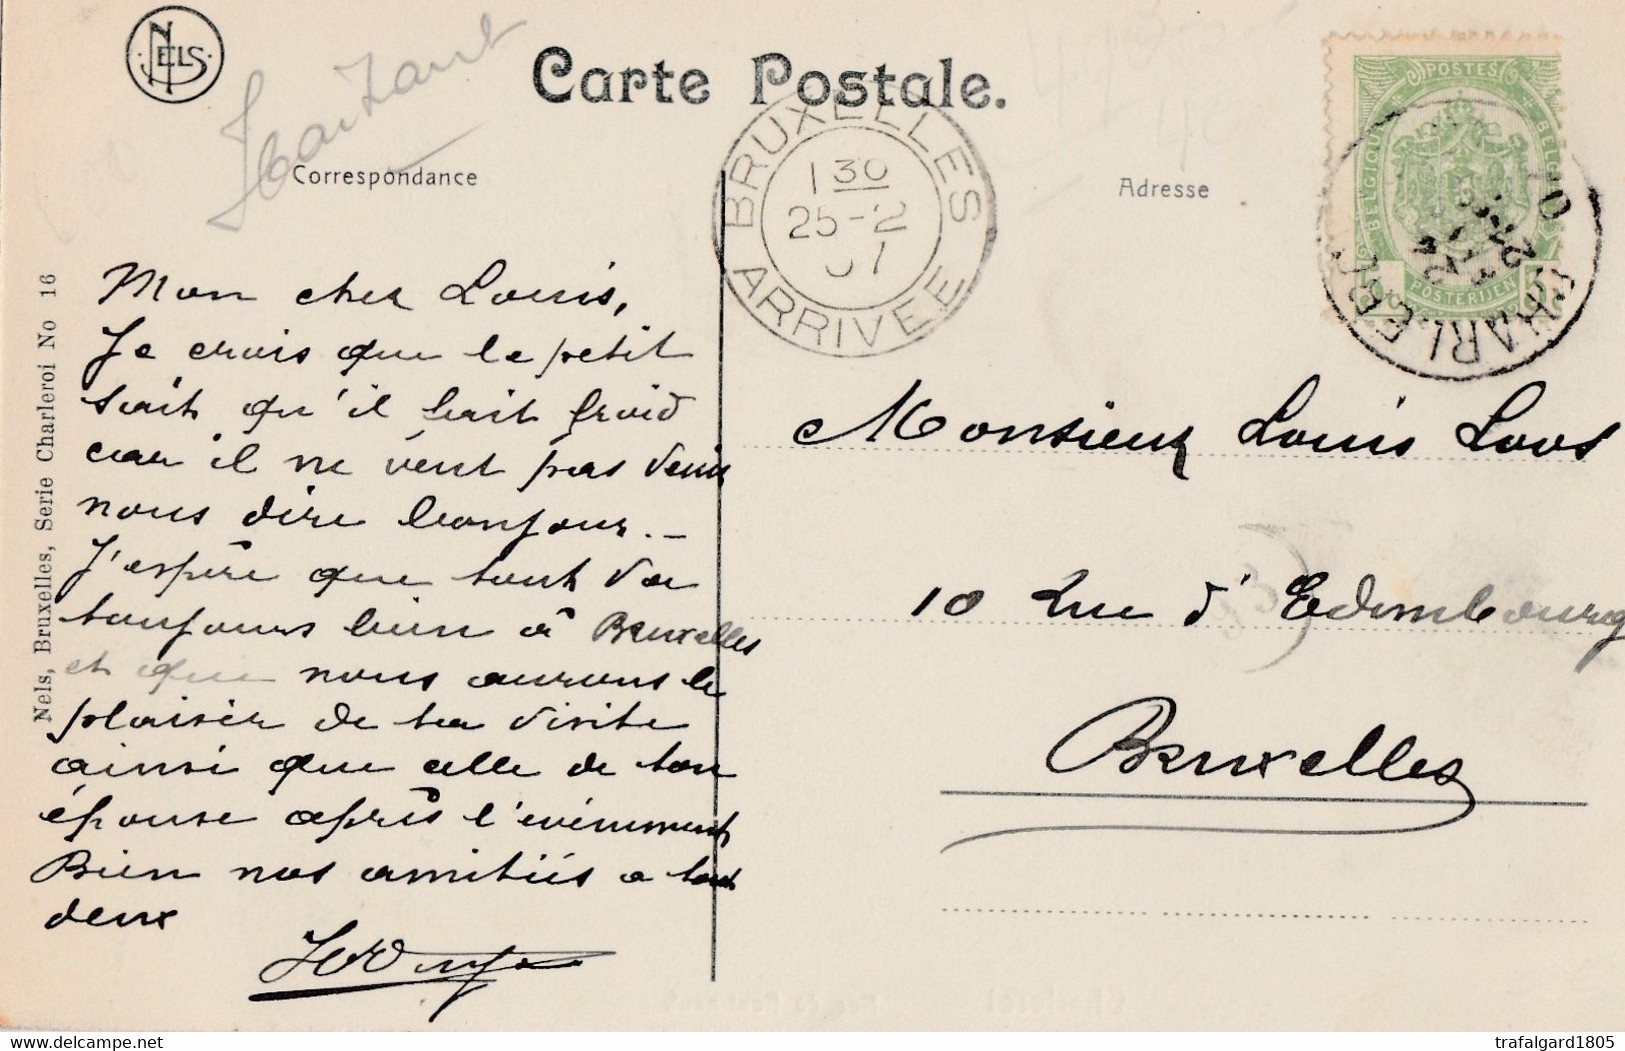 NELS
Carte Postale.
Correspondance
Adresse
BRUXELLES
1 30
25-2
07
ARRIVEE
POSTES
BELGIQUE
BELGIË
POSTERIJEN
CHARLEROI
Nels, Bruxelles, Serie Charleroi No 16
Mon cher Louis,
Je crois que le petit
sait qu'il fait froid
car il ne veut pas venir
nous dire bonjour. -
J'espère que tout va
toujours bien à Bruxelles
et que nous aurons le
plaisir de ta visite
ainsi que celle de ton
épouse après l'évènement
Bien nos amitiés a tout
deux
Monsieur Louis Loos
10 Rue d'Edimbourg
Bruxelles
trafalgard1805